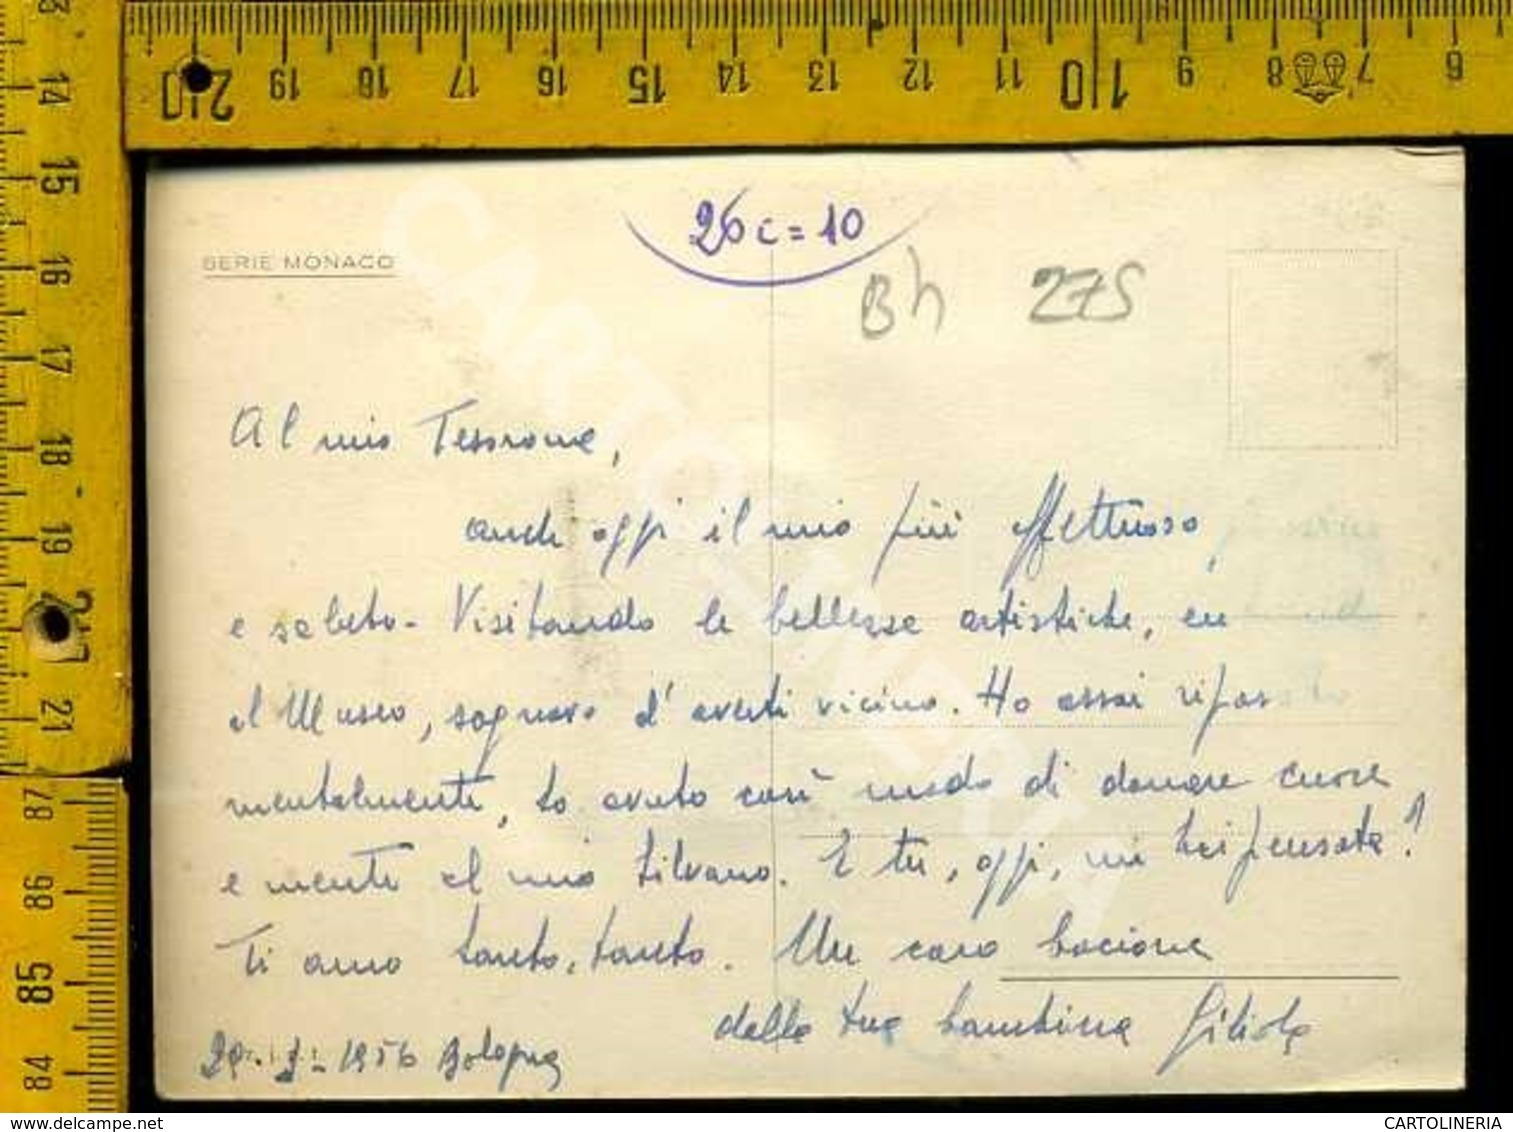 20 19 18 17 16 15 14 13 12 11 10 9 8 7 6
14
15
16
17
18
19
21
87
86
85
84
SERIE MONACO
26 c = 10
Bh 275
CARTOLINERIA
Al mio Tesorone,
anche oggi il mio più affettuoso
saluto. Visitando le bellezze artistiche, ed
il Museo, sognavo d'averti vicino. Ho assai
mentalmente, ho avuto così modo di donare cuore
e mente al mio Silvano. E tu, oggi, mi hai pensata?
Ti amo tanto, tanto. Un caro bacione
dalla tua bambina
1956 Bologna
delcampe.net
CARTOLINERIA